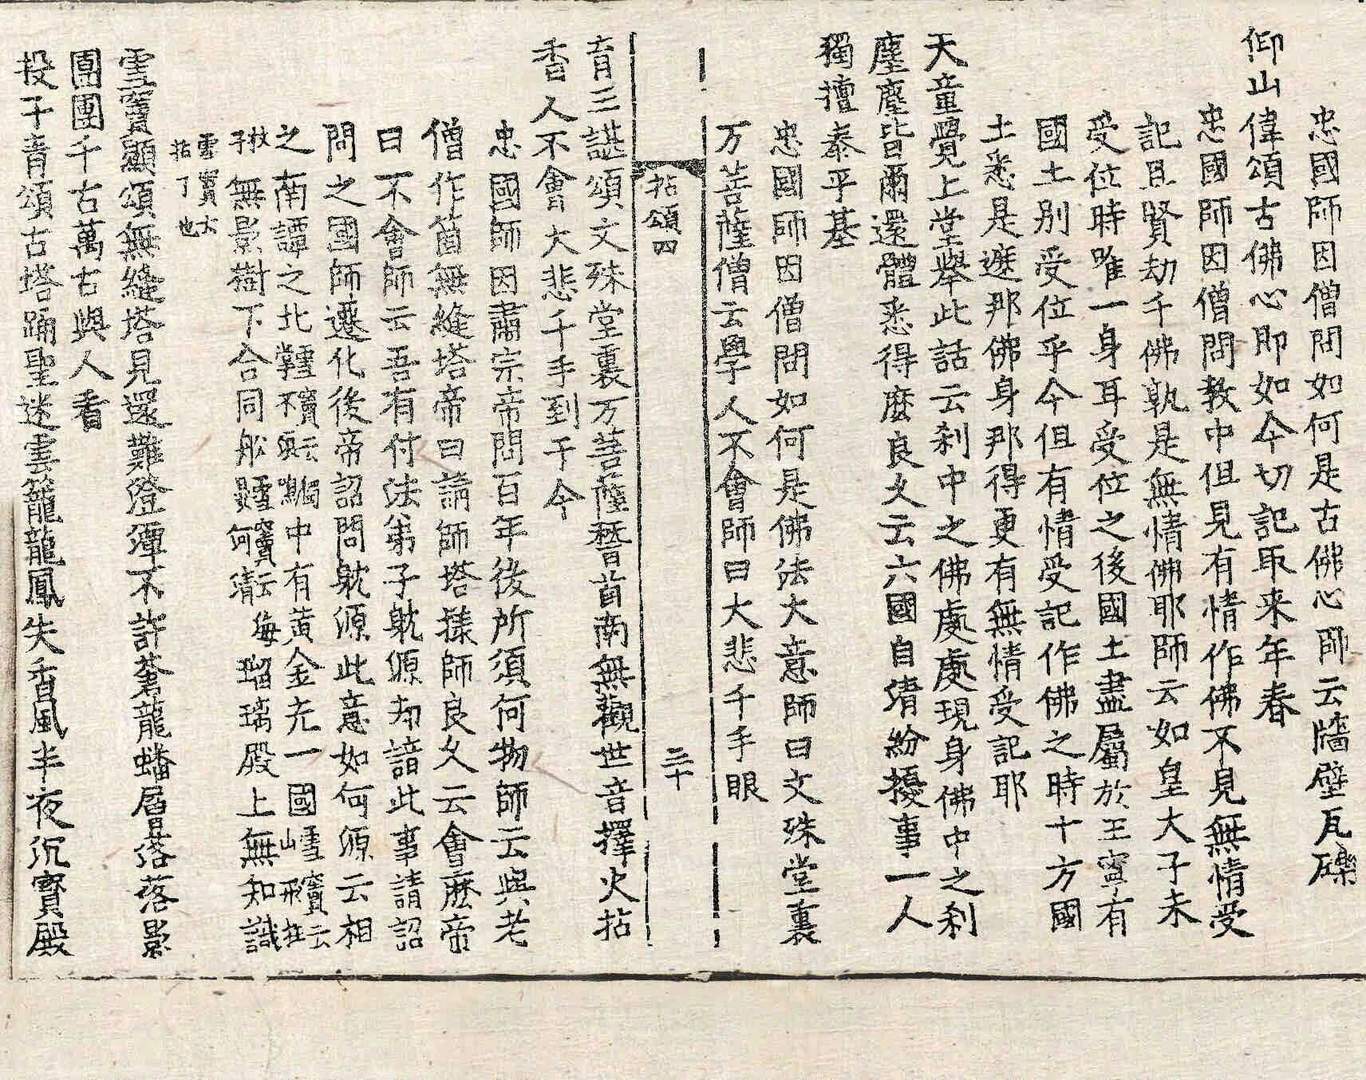 忠國師因僧問如何是古佛心師云牆壁瓦礫
仰山偉頌古佛心即如今切記取来年春
忠國師因僧問教中但見有情作佛不見無情受
記且賢劫千佛孰是無情佛耶師云如皇太子未
受位時唯一身耳受位之後國土盡屬於王寧有
國土別受位乎今但有情受記作佛之時十方國
土悉是遮那佛身那得更有無情受記耶
天童覺上堂舉此話云刹中之佛處處現身佛中之刹
塵塵皆爾還體悉得麽良久云六國自清紛擾事一人
獨擅泰平基
忠國師因僧問如何是佛法大意師曰文殊堂裏
万菩薩僧云學人不會師曰大悲千手眼
拈頌四
三十
育王諶頌文殊堂裏万菩薩瞀首南無觀世音擇火拈
香人不會大悲千手到于今
忠國師因肅宗帝問百年後所須何物師云與老
僧作箇無縫塔帝曰請師塔㨾師良久云會麽帝
曰不會師云吾有付法弟子躭源却諳此事請詔
問之國師遷化後帝詔問躭源此意如何源云相
之南譚之北雪竇云獨掌不浪鳴中有黃金充一國雪竇云山形拄
杖子無影樹下合同舩雪竇云海晏河清瑠璃殿上無知識
雪竇云拈了也
雪竇顯頌無縫塔見還難澄潭不許蒼龍蟠層落落影
團團千古萬古與人看
投子青頌古塔踊聖迷雲籠龍鳳失香風半夜沉寶殿